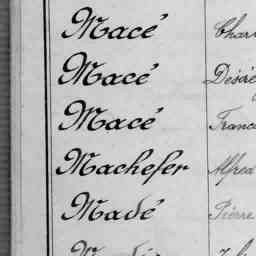 Macé Char
Macé Désiré
Macé Franc
Machefer Alfred
Madé Pierre